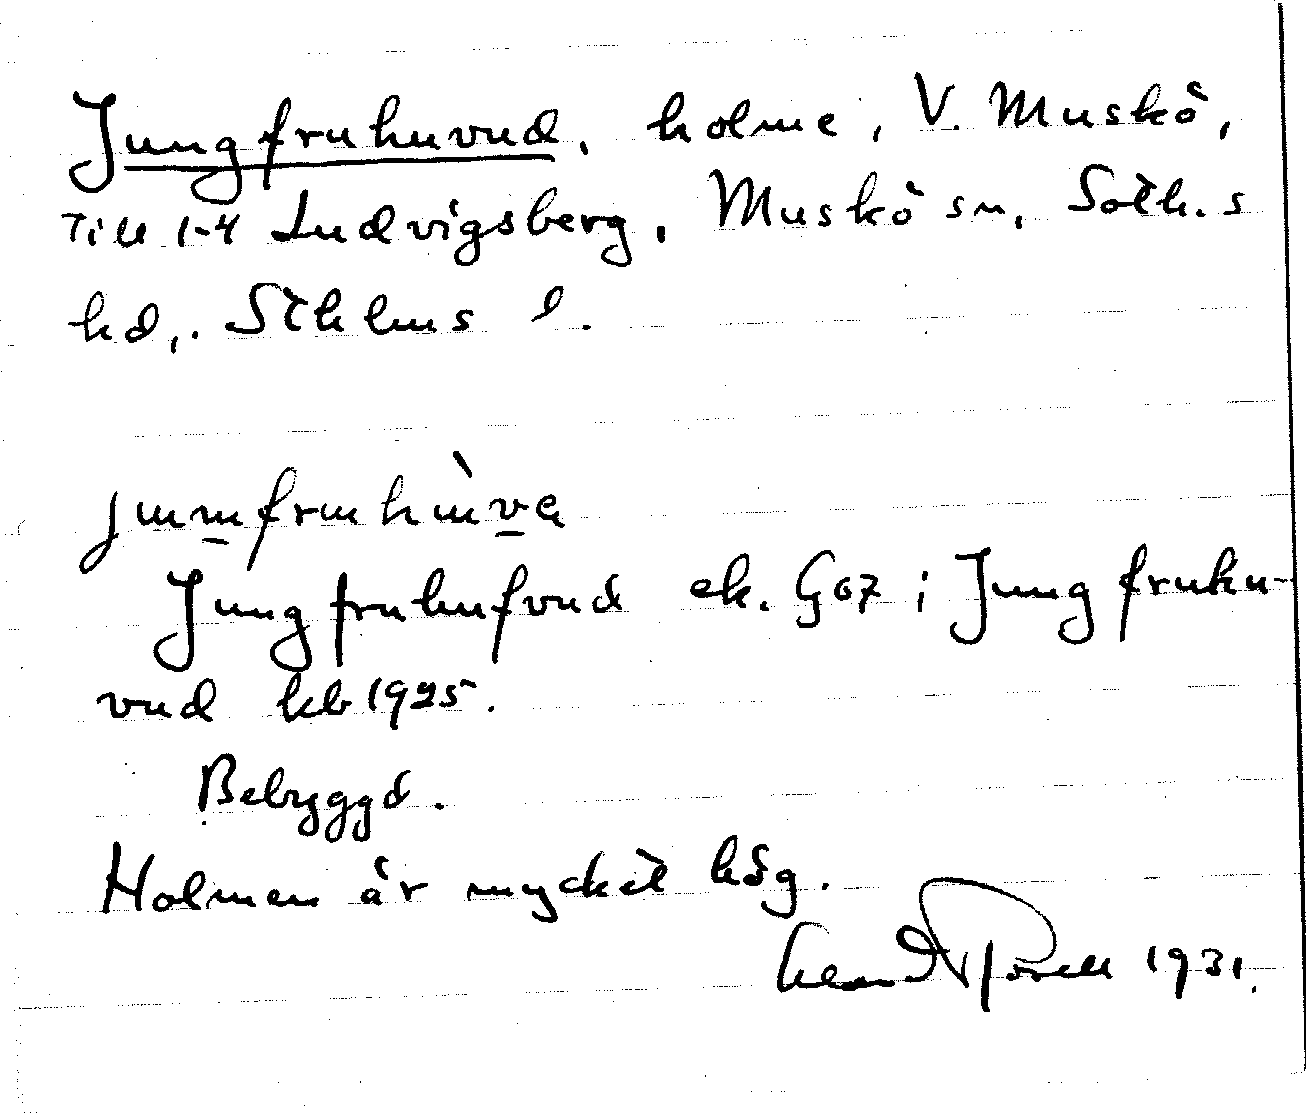 Jungfruhuvud, holme, V. Muskö,
Till 1-4 Ludvigsberg, Muskö sn, Soth.s
hd,. Sthlms l.
jumfruhùvę
Jungfruhufvud ek. G07; Jungfruhu-
vud kb 1925.
Bebyggd.
Holmen är mycket hög.
1931.